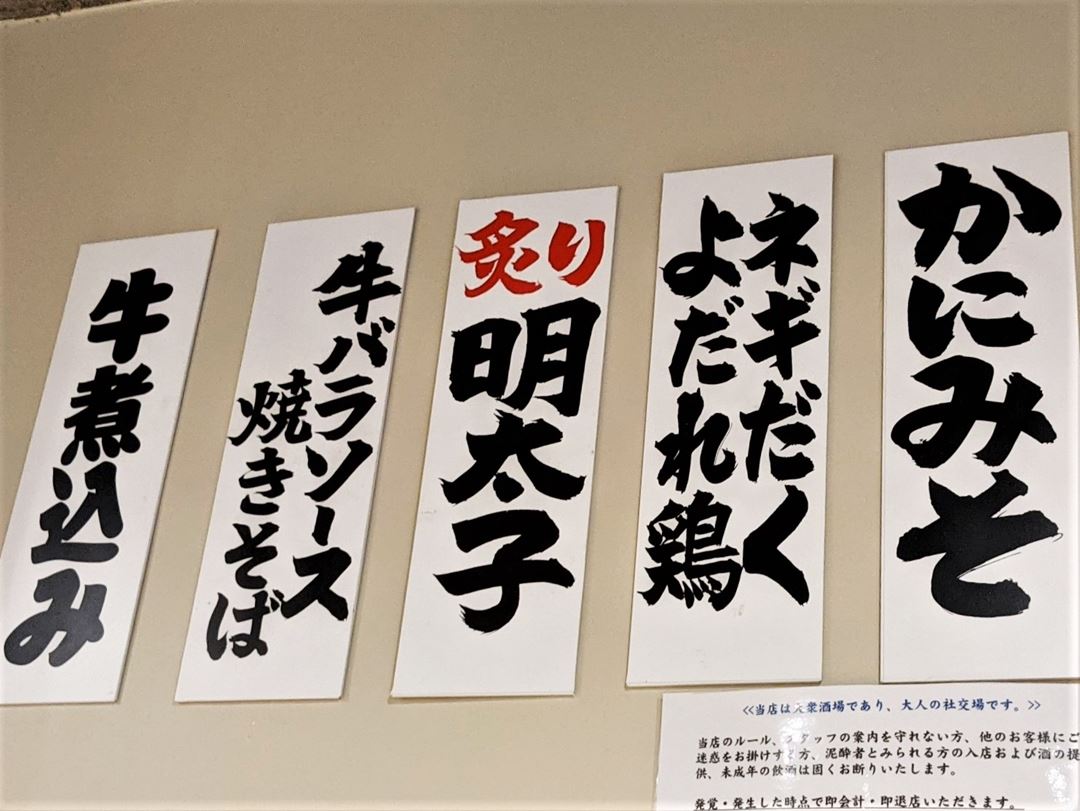 かにみそ
ネギだく
よだれ鶏
炙り
明太子
牛バラソース
焼きそば
牛煮込み
≪当店は大衆酒場であり、大人の社交場です。≫
当店のルール、スタッフの案内を守れない方、他のお客様にご
迷惑をお掛けする方、泥酔者とみられる方の入店および酒の提
供、未成年の飲酒は固くお断りいたします。
発覚・発生した時点で即会計・即退店いただきます。